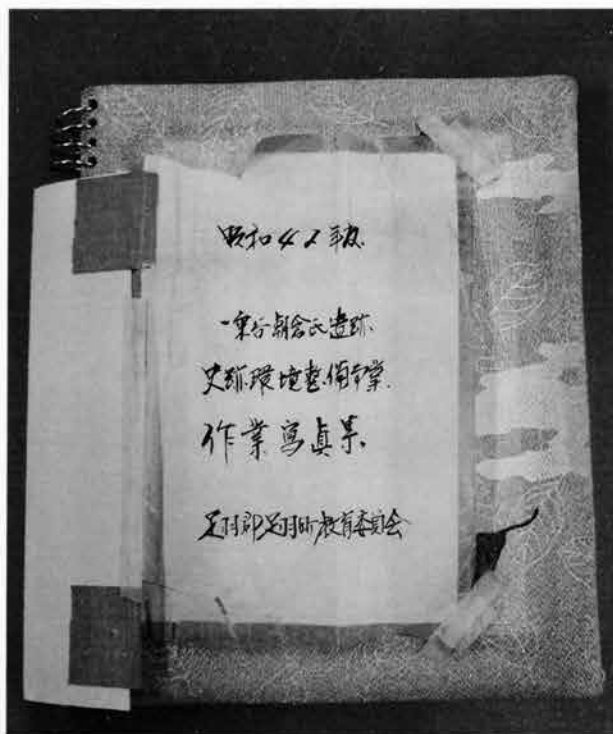 昭和42年度
一乗谷朝倉氏遺跡
史跡環境整備事業
作業写真集
足羽郡足羽町教育委員会